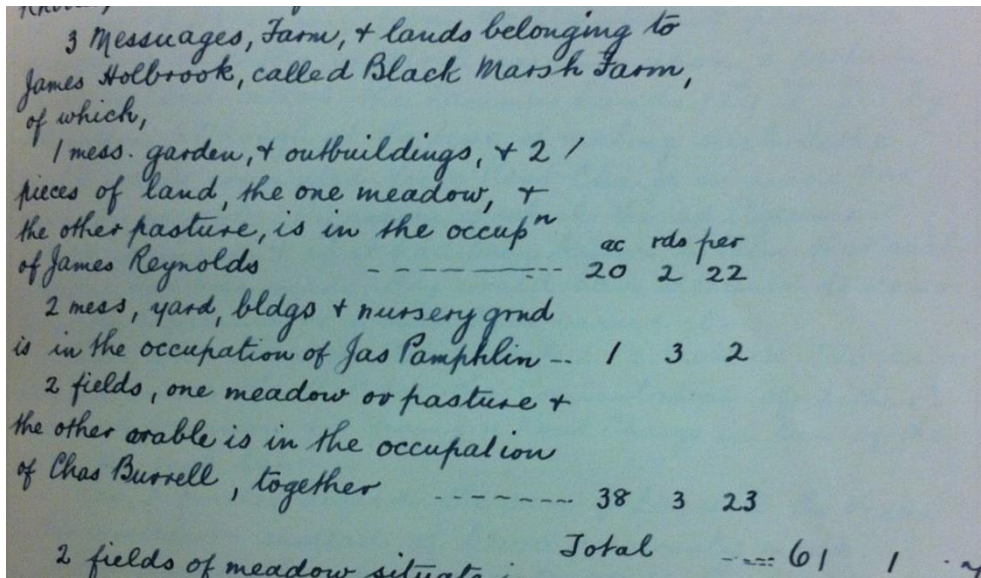 3 Messuages, Farm, + lands belonging to
James Holbrook, called Black Marsh Farm,
of which,
1 mess. garden, + outbuildings, + 2 /
pieces of land, the one meadow, +
the other pasture, is in the occupⁿ
ac rds per
of James Reynolds ---------- 20 2 22
2 mess, yard, bldgs + nursery grnd
is in the occupation of Jas Pamphlin -- 1 3 2
2 fields, one meadow or pasture +
the other arable is in the occupation
of Chas Burrell, together -------- 38 3 23
Total ---- 61 1
2 fields of meadow situate